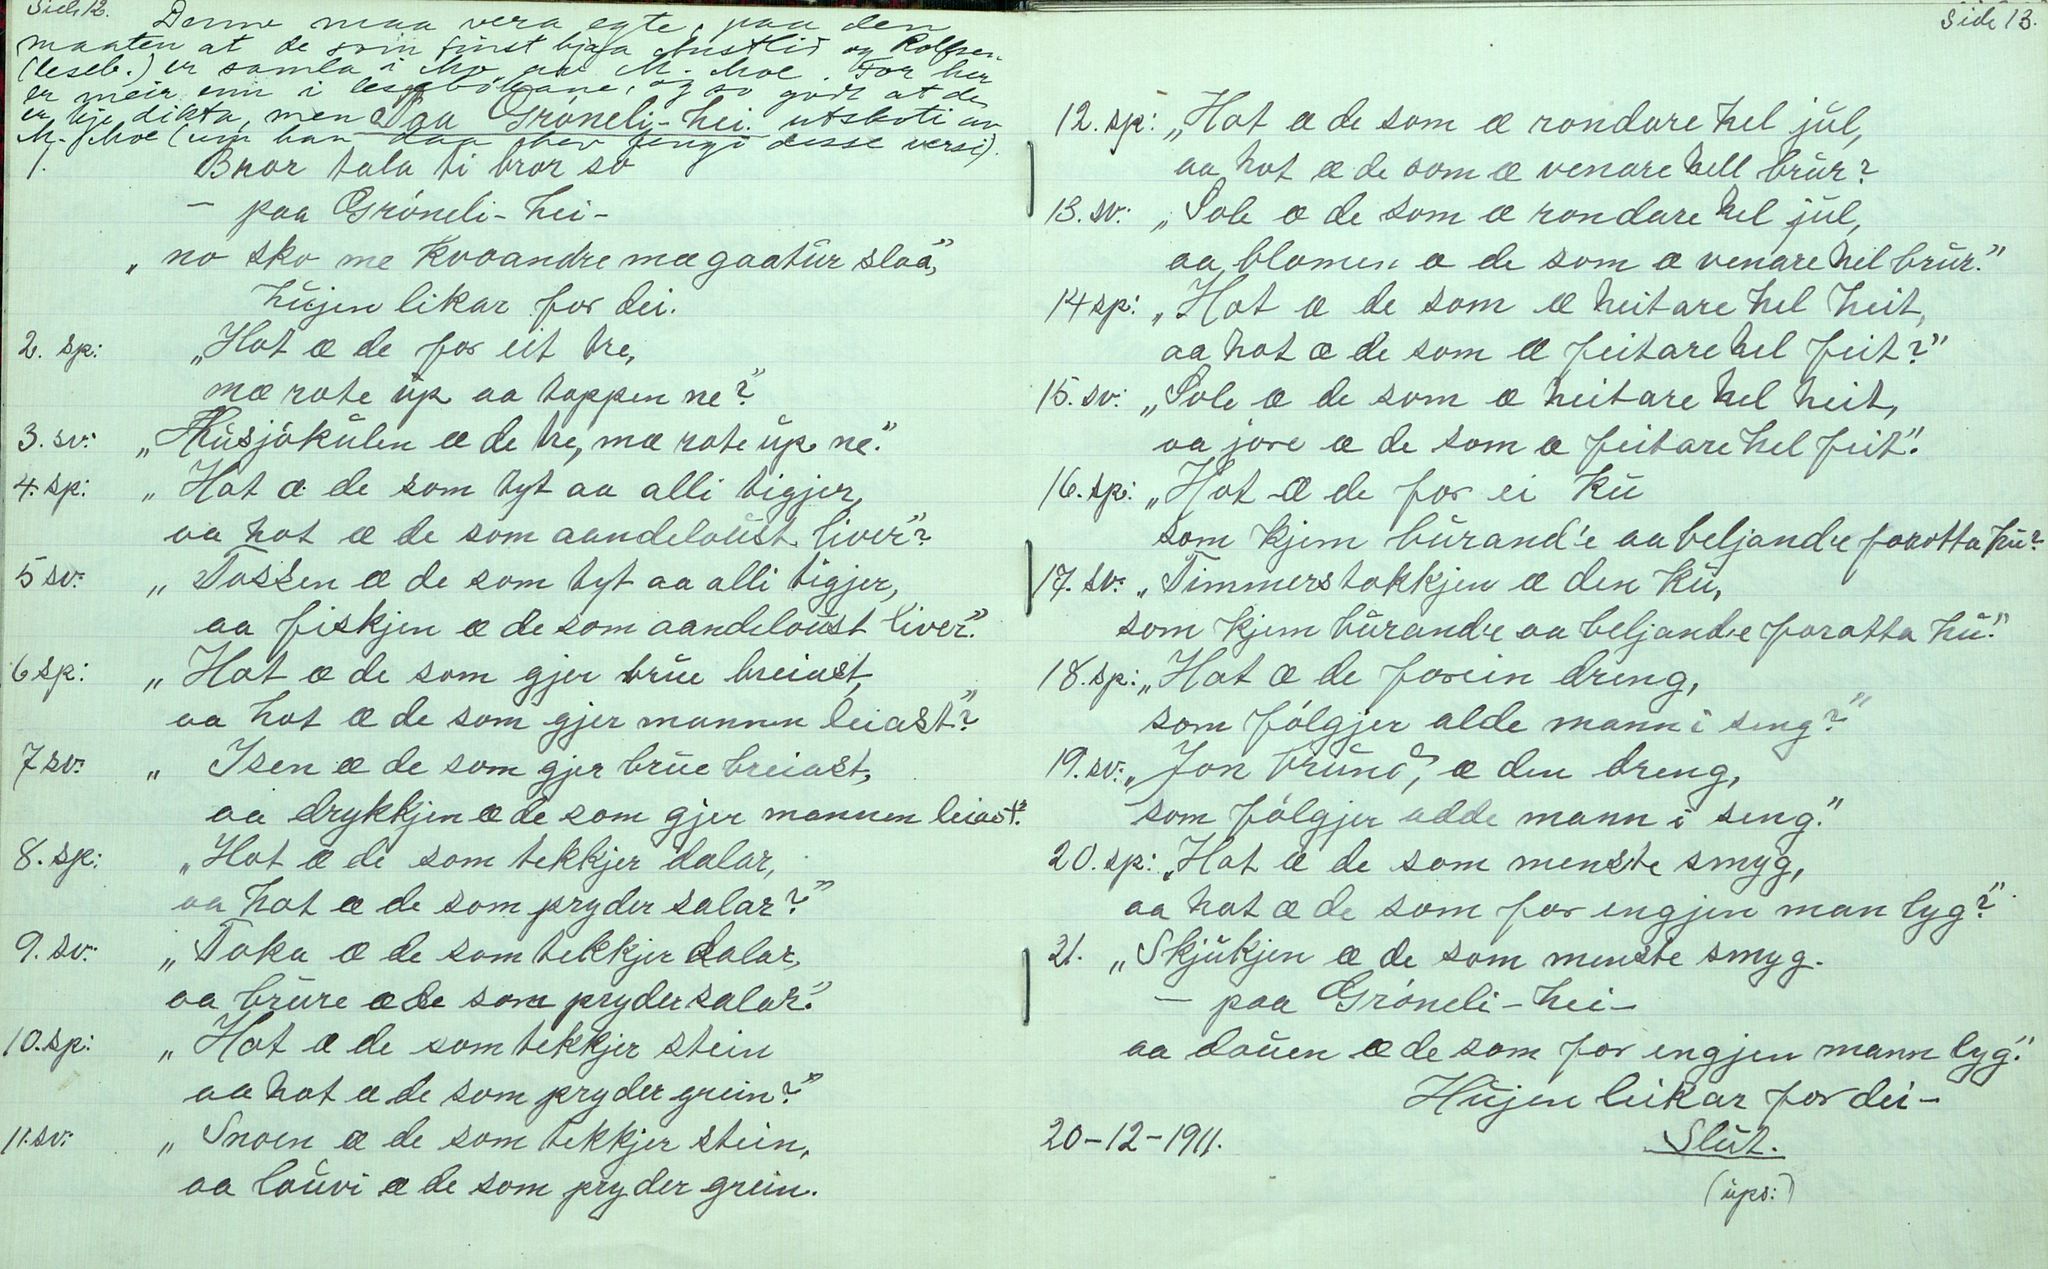 Side 12.
Denne maa vera egte, paa den
maaten at de som finst hjaa Austlid og Rolfsen
(leseb.) er samla i Mo av M. Moe. For her
er meir enn i lesebökane, og so godt at de
er kje dikta, men Paa Gróneli-hei. utskoti av
M. Moe (um han daa hev fengi desse versi).
1. Bror tala ti bror so
– paa Gróneli-hei –
„no sko me kvaandre mæ gaatur slaa",
hugjen likar for dei.
2. sp: „Hot æ de for eit tre,
mæ rote up aa toppen ne?"
3. sv: „Husjökulen æ de tre, mæ rote up ne."
4. sp: „Hot æ de som tyt aa alli tigjer,
aa hot æ de som aandeloust liver"?
5 sv: „Fossen æ de som tyt aa alli tigjer,
aa fiskjen æ de som aandeloust liver."
6 sp: „Hot æ de som gjer brue breiast,
aa hot æ de som gjer mannen leiast?"
7 sv: „Isen æ de som gjer brue breiast,
aa drykkjen æ de som gjer mannen leiast."
8. sp: „Hot æ de som tekkjer dalar,
aa hot æ de som pryder salar?"
9. sv: „Toka æ de som tekkjer dalar,
aa brure æ de som pryder salar."
10. sp: „Hot æ de som tekkjer stein
aa hot æ de som pryder grein?"
11. sv: „Snoen æ de som tekkjer stein,
aa louvi æ de som pryder grein.
Side 13.
12. sp: „Hot æ de som æ rondare hel jul,
aa hot æ de som æ venare hell brur?
13. sv: „Sole æ de som æ rondare hel jul,
aa blomen æ de som æ venare hel brur."
14 sp: „Hot æ de som æ heitare hel heit,
aa hot æ de som æ feitare hel feit?"
15. sv: „Sole æ de som æ heitare hel heit,
aa jore æ de som æ feitare hel feit".
16. sp: „Hot æ de for ei ku
som kjem burand'e aa beljand'e forotta hu?
17. sv: „Timmerstokkjen æ den ku,
som kjem burand'e aa beljand'e forotta hu."
18. sp: „Hot æ de forein dreng,
som fólgjer alde mann i seng?"
19. sv: „Jon bruno", æ den dreng,
som fólgjer adde mann i seng."
20. sp: „Hot æ de som menste smyg,
aa hot æ de som for engjen man lyg?"
21. „Skjukjen æ de som menste smyg.
– paa Gróneli-hei –
aa douen æ de som for engjen mann lyg."
Hugjen leikar for dei –
20-12-1911. Slut.
(ups:)